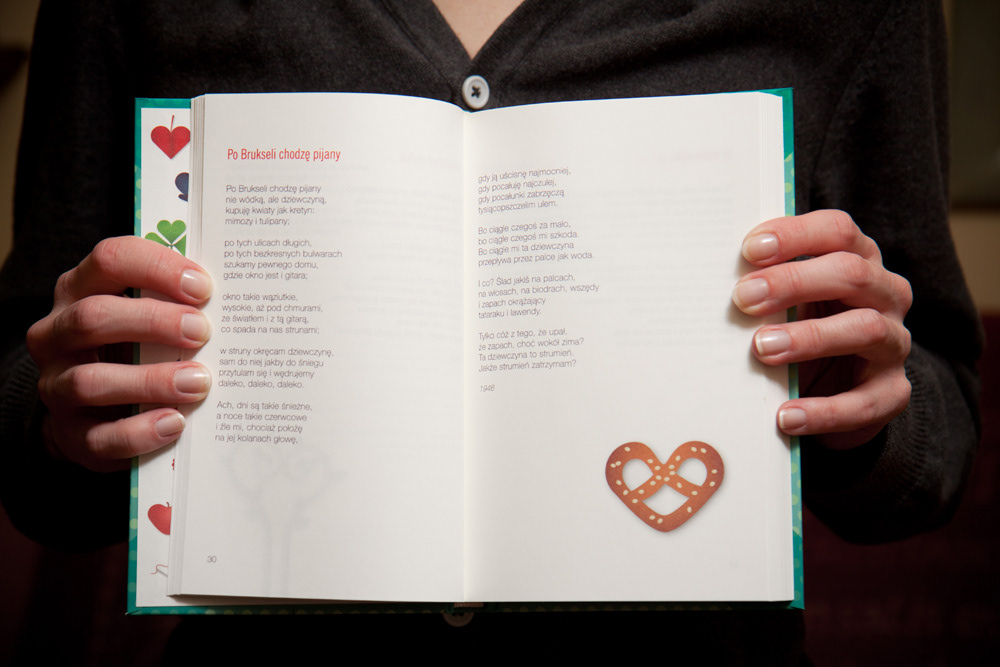 Po Brukseli chodzę pijany
Po Brukseli chodzę pijany
nie wódką, ale dziewczyną,
kupuję kwiaty jak kretyn:
mimozy i tulipany;
po tych ulicach długich,
po tych bezkresnych bulwarach
szukamy pewnego domu,
gdzie okno jest i gitara;
okno takie wąziutkie,
wysokie, aż pod chmurami,
ze światłem i z tą gitarą,
co spada na nas strunami;
w struny okręcam dziewczynę,
sam do niej jakby do śniegu
przytulam się i wędrujemy
daleko, daleko, daleko.
Ach, dni są takie śnieżne,
a noce takie czerwcowe
i źle mi, chociaż położę
na jej kolanach głowę,
30
gdy ją uścisnę najmocniej,
gdy pocałuję najczulej,
gdy pocałunki zabrzęczą
tysiącopszczelim ulem.
Bo ciągle czegoś za mało,
bo ciągle czegoś mi szkoda.
Bo ciągle mi ta dziewczyna
przepływa przez palce jak woda.
I co? Ślad jakiś na palcach,
na włosach, na biodrach, wszędy
i zapach okrążający
tataraku i lawendy.
Tylko cóż z tego, że upał,
że zapach, choć wokół zima?
Ta dziewczyna to strumień.
Jakże strumień zatrzymam?
1946